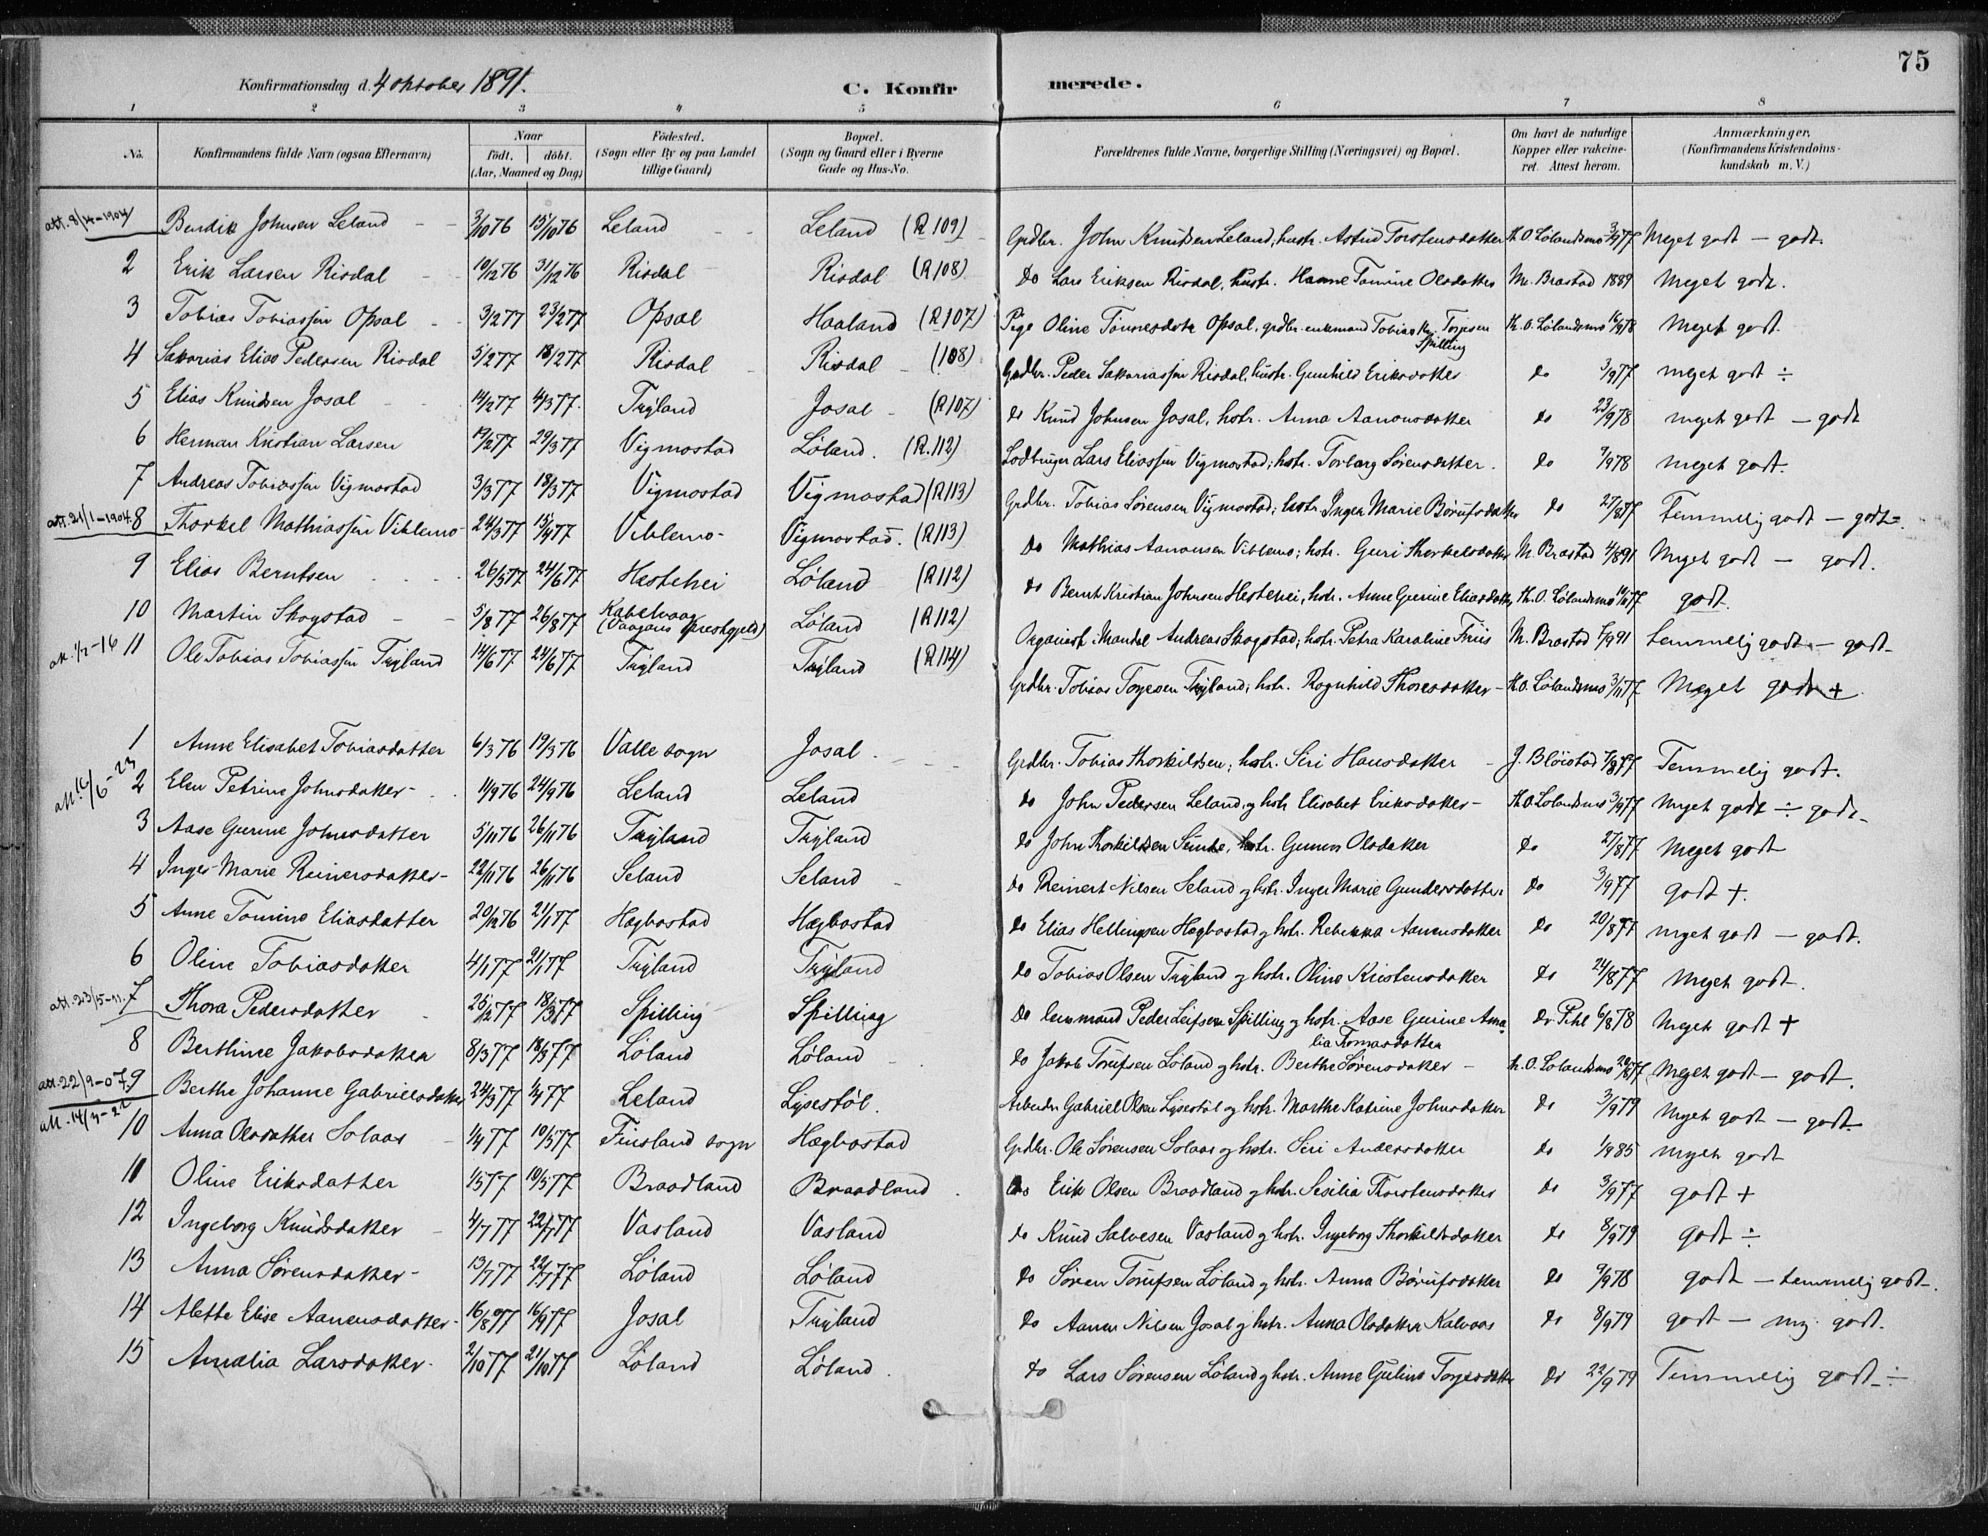 75
Konfirmationsdag d. 4 oktober 1891.
C. Konfirmerede.
1 2 3 4 5 6 7 8
No. | Konfirmandens fulde Navn (ogsaa Efternavn) | Naar födt. döbt. (Aar, Maaned og Dag) | Födested. (Sogn eller By og paa Landet tillige Gaard) | Bopæl. (Sogn og Gaard eller i Byerne Gade og Hus-No. | Forældrenes fulde Navne, borgerlige Stilling (Næringsvei) og Bopæl. | Om havt de naturlige Kopper eller vaccineret. Attest herom. | Anmærkninger. (Konfirmandens Kristendomskundskab m. V.)
att. 8/4-1904 Bendik Johnsen Leland 3/10 76 15/10 76 Leland Leland (R 109) Grdbr. John Knudsen Leland, hustr. Astrid Torstensdatter Th.O. Lølandsmo 3/9 77 Meget godt – godt.
2 Erik Larsen Risdal 10/12 76 31/12 76 Risdal Risdal (R 108) do Lars Eriksen Risdal, hustr. Hanne Tomine Olsdatter M. Brastad 1889 Meget godt.
3 Tobias Tobiassen Opsal 3/2 77 23/2 77 Opsal Haaland (R 107) Pige Oline Tønnesdatr Opsal, grdbr. enkemand Tobias Torjesen Spilling Th.O. Lølandsmo 16/9 78 Meget godt.
4 Sakarias Elias Pedersen Risdal 5/2 77 18/2 77 Risdal Risdal (108) Grdbr. Peder Sakariassen Risdal, hustr. Gunhild Eriksdatter do 3/9 77 meget godt ÷
5 Elias Knudsen Josal 14/2 77 4/3 77 Tryland Josal (R 107) do Knud Johnsen Josal, hstr. Anna Aanonsdatter do 23/9 78 meget godt – godt
6 Herman Kristian Larsen 19/2 77 29/3 77 Vigmostad Løland. (R. 112) Lars Eliassen Vigmostad; hstr. Torborg Sørensdatter. do 7/9 78 meget godt.
7 Andreas Tobiassen Vigmostad 3/3 77 18/3 77 Vigmostad Vigmostad (R 113) Grdbr. Tobias Sørensen Vigmostad; hstr. Inger Marie Børufsdatter do 27/8 77 Temmelig godt – godt.
att. 21/1-1904. 8 Thorkel Mathiassen Viblemo 24/3 77 15/4 77 Viblemo Vigmostad. (R 113) do Mathias Aanonsen Viblemo; hstr. Guri Thorkelsdatter M. Brastad 4/8 91 Meget godt – godt.
9 Elias Berntsen 26/5 77 24/6 77 Hestehei Løland (R 112) do Bernt Kristian Johnsen Hestehei, hstr. Anne Gurine Eliasdatter Th.O. Lølandsmo 77 godt.
10 Martin Skogstad 5/8 77 26/8 77 Kabelvaag (Vaagans Prestegjeld) Løland (R 112) Organist. Mandal Andreas Skogstad; hstr. Petra Karoline Friis M. Brastad 7/9 91 temmelig godt – godt
att. 1/2-16 11 Ole Tobias Tobiassen Tryland 14/6 77 24/6 77 Tryland Tryland (R 114) Grdbr. Tobias Torjesen Tryland; hstr. Ragnhild Thoresdatter – Th.O. Lølandsmo 3/11 77 Meget godt +
1 Anne Elisabet Tobiasdatter 6/3 76 19/3 76 Valle sogn Josal Grdbr. Tobias Thorkildsen; hstr. Siri Hansdatter J. Bløistad 7/8 77 Temmelig godt.
att. 16/6-23 2 Elen Petrine Johnsdatter 11/9 76 24/9 76 Leland Leland do John Pedersen Leland og hstr Elisabet Eriksdatter Th.O. Lølandsmo 3/9 77 Meget godt ÷ godt
3 Aase Gurine Johnsdatter 5/11 76 26/11 76 Tryland Tryland do John Thorkildsen, hstr. Gunvor Olsdatter do 27/8 77 Meget godt
4 Inger Marie Reinersdatter 22/11 76 26/11 76 Seland Seland do Reinert Nilsen Seland og hstr. Inger Marie Gundersdatter do 3/9 77 godt +.
5 Anne Tomine Eliasdatter 20/12 76 21/1 77 Hægbostad Hægbostad do Elias Hellingsen Hægbostad og hstr. Rebekka Aanensdatter do 20/8 77 meget godt – godt.
6 Oline Tobiasdatter 4/1 77 21/1 77 Tryland Tryland do Tobias Olsen Tryland og hstr. Oline Kristensdatter do 24/8 77 Meget godt.
att. 23/5-11. 7 Thora Pedersdatter 25/2 77 18/3 77 Spilling Spilling do lensmand Peder Leifsen Spilling og hstr. Aase Gurine Amalia Tomasdatter Dr. Pihl 6/8 78 Meget godt +
8 Berthine Jakobsdatter 8/3 77 18/3 77 Løland Løland do Jakob Torufsen Løland og hstr. Berthe Sørensdatter Th.O. Lølandsmo 77 Meget godt – godt.
att. 22/9-07. 9 Berthe Johanne Gabrielsdatter 24/3 77 1/4 77 Leland Lysestøl. Arbeider Gabriel Olsen Lysestøl og hstr. Marthe Katrine Johnsdatter do 3/9 79 Meget godt – godt
10 Anna Olsdatter Solaas 1/4 77 10/5 77 Finsland sogn Hægbostad Grdbr. Ole Sørensen Solaas og hstr. Siri Andersdatter do 1/9 85 meget godt
11 Oline Eriksdatter 1/5 77 10/5 77 Braadland Braadland do Erik Olsen Braadland og hstr. Sesilia Thorstensdatter do 3/9 77 godt +
12 Ingeborg Knudsdatter 4/7 77 22/7 77 Vasland Vasland do Knud Salvesen Vasland og hstr. Ingeborg Thorkildsdatter do 8/9 79 godt ÷
13 Anna Sørensdatter 13/7 77 22/7 77 Løland Løland do Søren Torufsen Løland og hstr. Anna Børufsdatter do 9/9 78 godt – temmelig godt
14 Alette Elise Aanensdatter 16/8 77 16/9 77 Josal Tryland do Aanen Nilsen Josal og hstr. Anna Olsdatter Kalvaas do 8/9 79 godt – mg. godt.
15 Amalia Larsdatter 2/10 77 21/10 77 Løland Løland do Lars Sørensen Løland og hstr. Anne Guline Torjesdatter do 22/9 79 Temmelig godt ÷